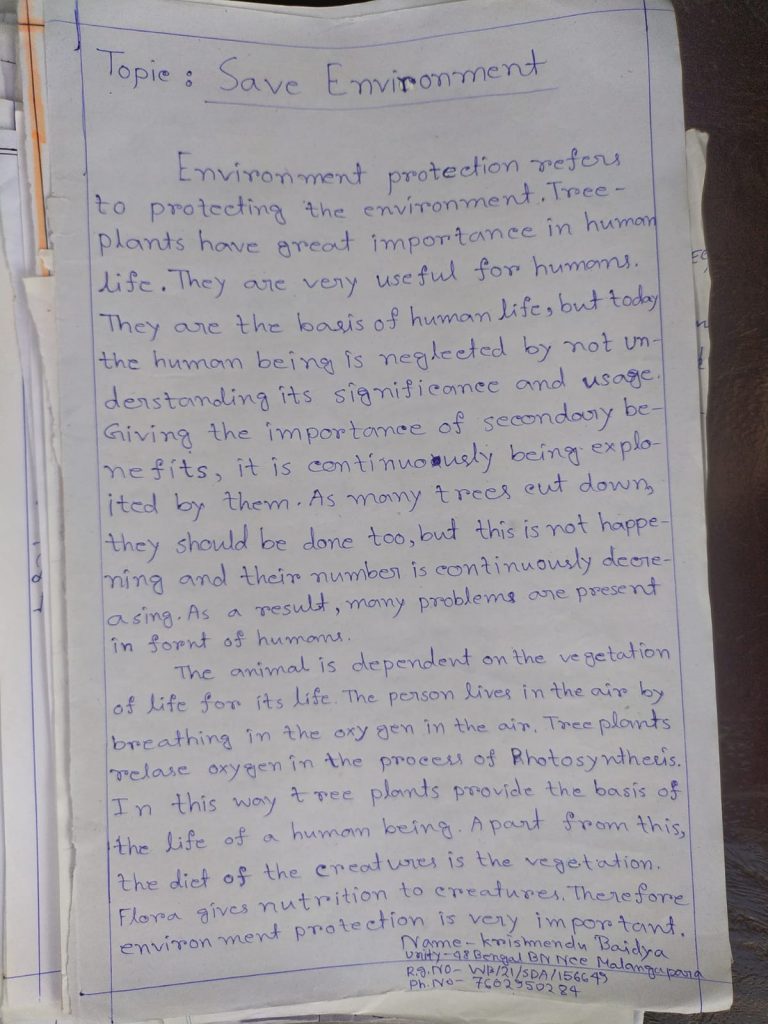 Topic : Save Environment
Environment protection refers
to protecting the environment. Tree-
plants have great importance in human
life. They are very useful for humans.
They are the basis of human life, but today
the human being is neglected by not un-
derstanding its significance and usage.
Giving the importance of secondary be-
nefits, it is continuously being explo-
ited by them. As many trees cut down,
they should be done too, but this is not happe-
ning and their number is continuously decre-
asing. As a result, many problems are present
in fornt of humans.
The animal is dependent on the vegetation
of life for its life. The person lives in the air by
breathing in the oxygen in the air. Tree plants
relase oxygen in the process of Photosynthesis.
In this way tree plants provide the basis of
the life of a human being. Apart from this,
the diet of the creatures is the vegetation.
Flora gives nutrition to creatures. Therefore
environment protection is very important.
Name- Krishnendu Baidya
Unity- 48 Bengal BN Ncc Malangapara
R.g. No- WB/21/SDA/156649
Ph. No- 7602550284